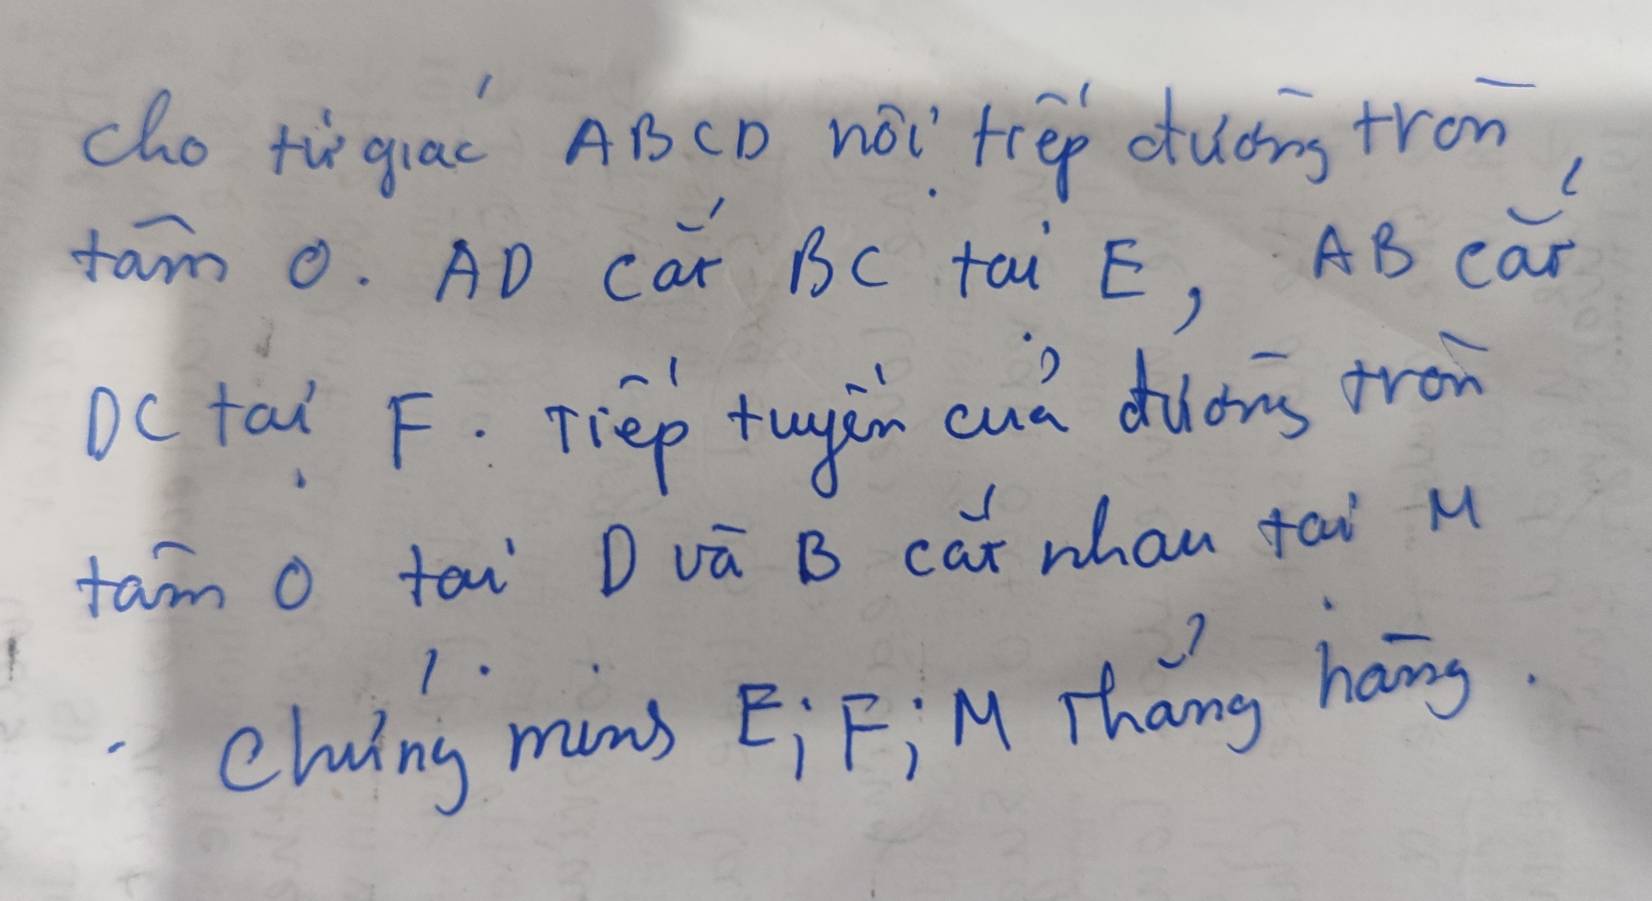 cho tứ giác ABCD nội tiếp đường tròn,
tâm O. AD cắt BC tại E, AB cắt
DC tại F. Tiếp tuyến của đường tròn
tâm O tại D và B cắt nhau tại M
. Chứng minh E; F; M Thẳng hàng.